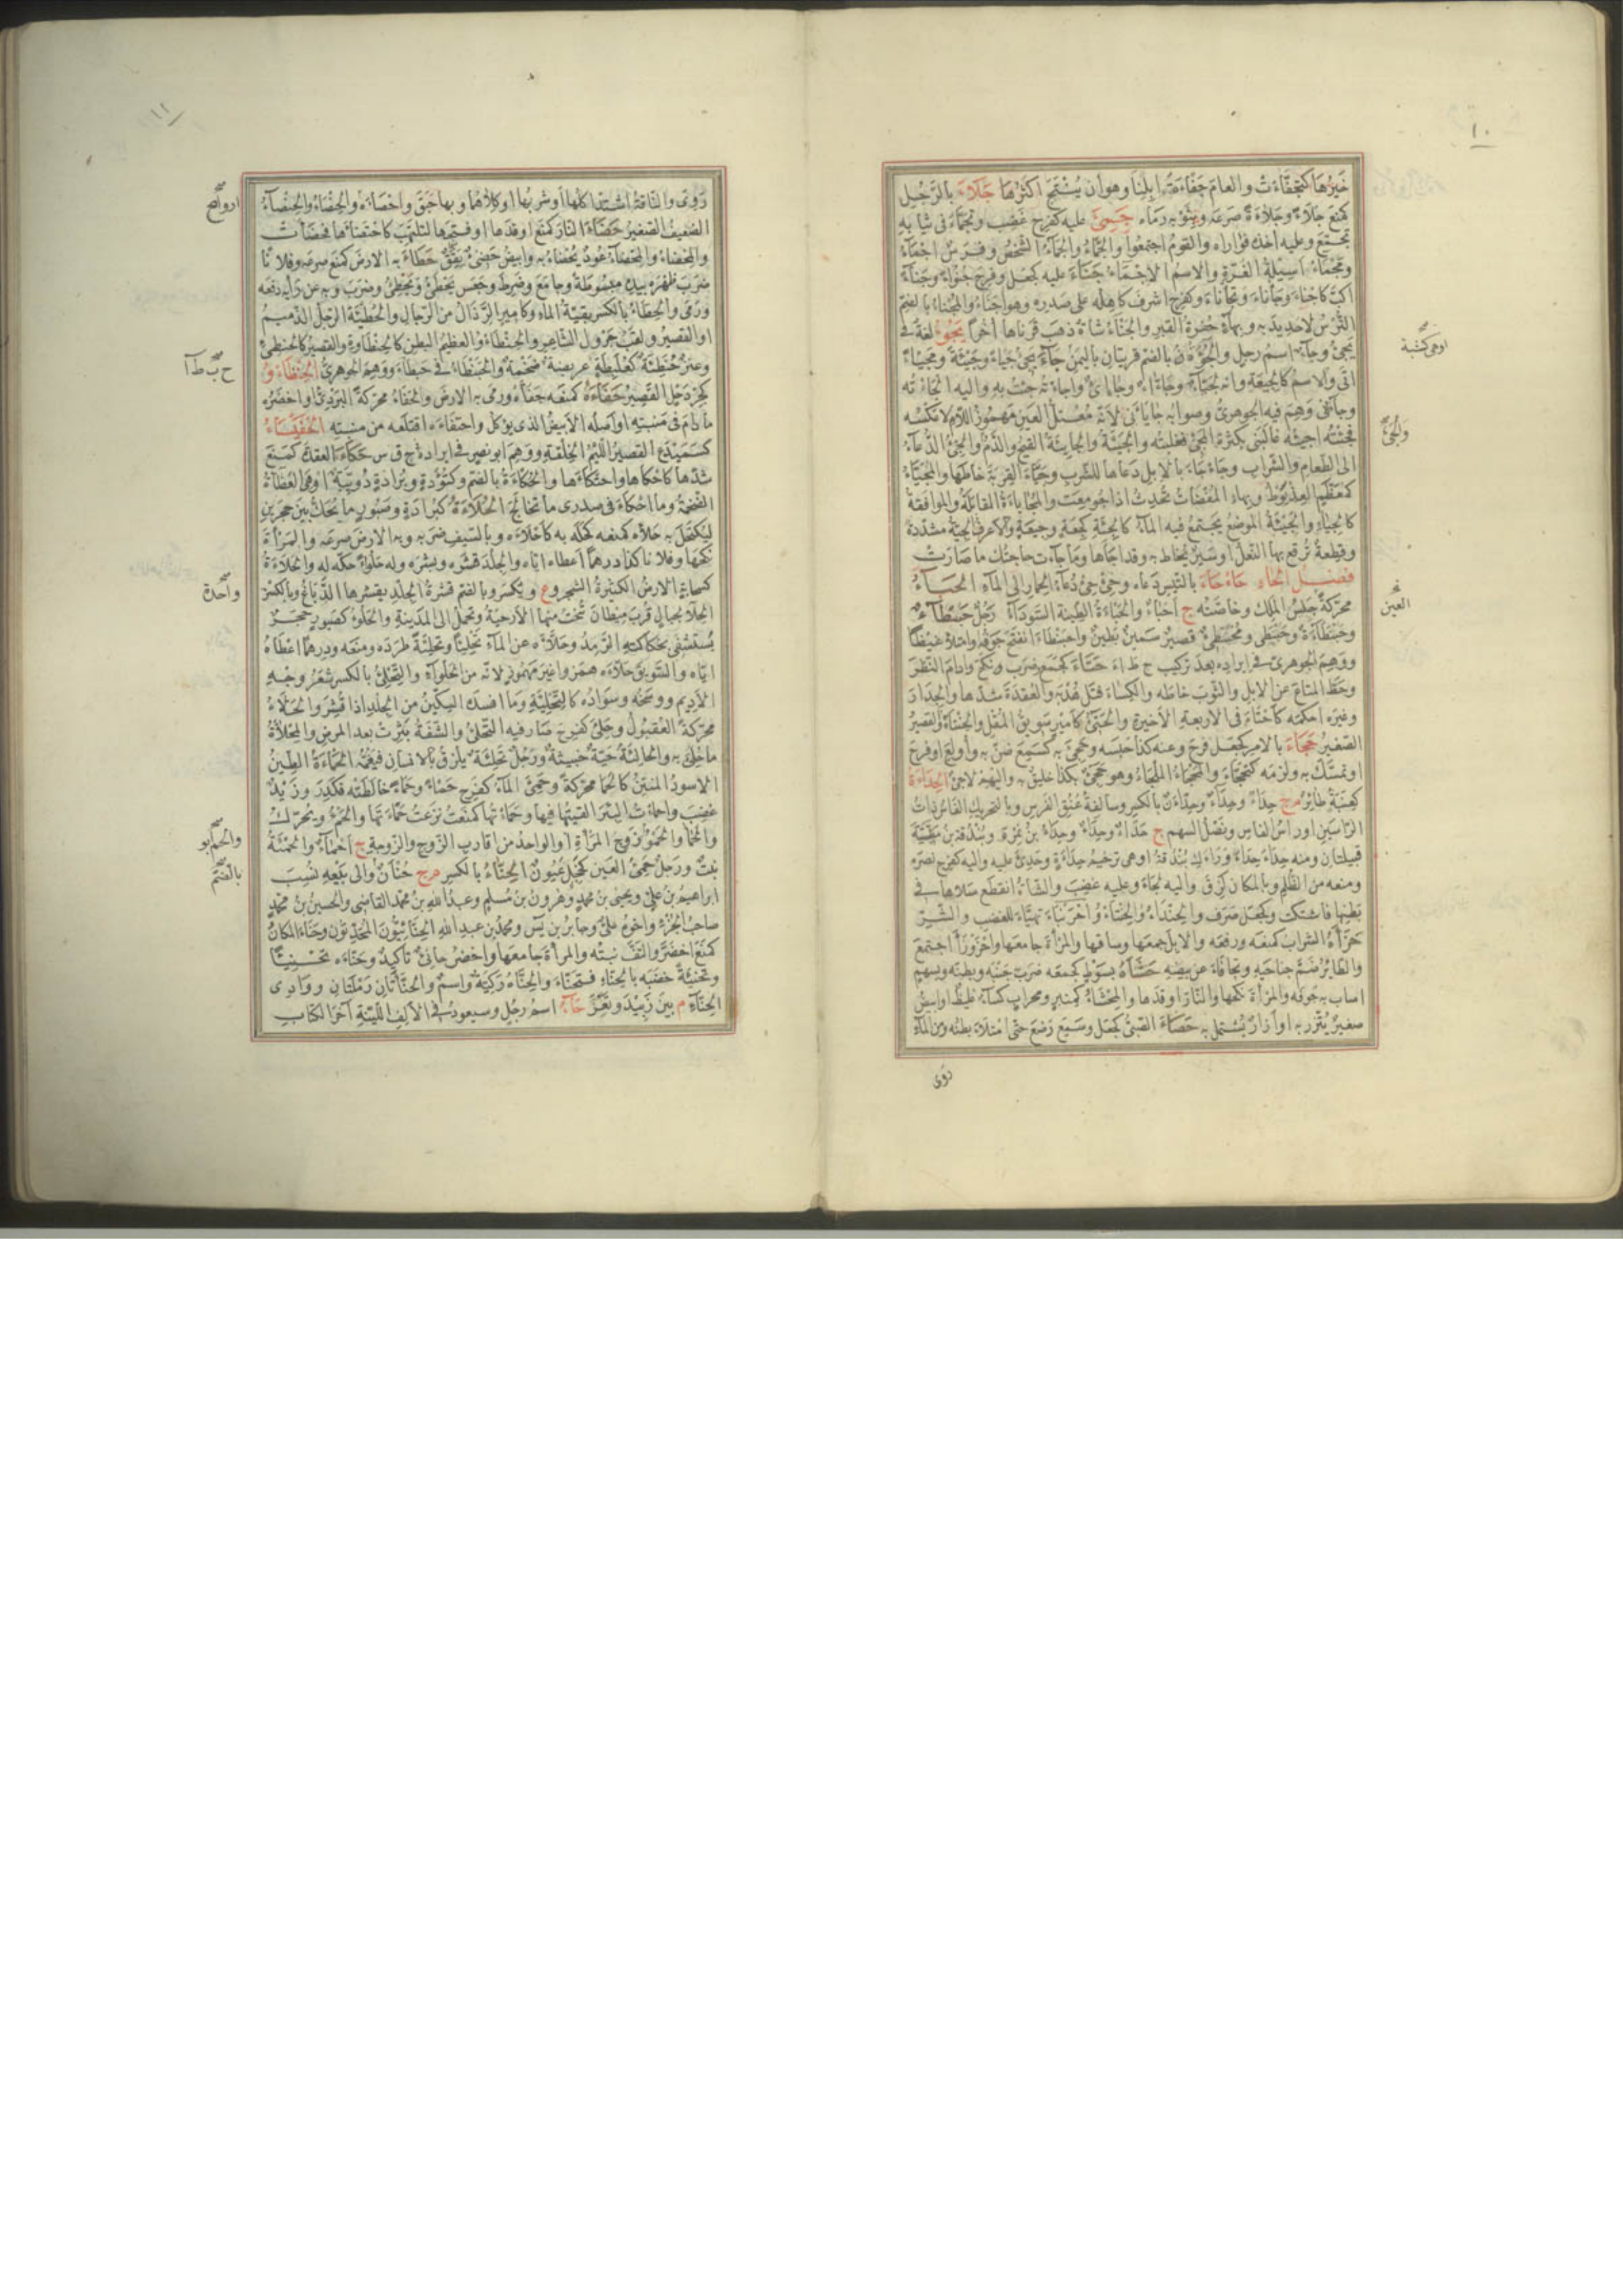 ١٠
خيرها كتجفأت والعام جفأة ابلنا وهو أن ينتج اكثرها جلاء بالرجل
كمنع جلاء وجلاءة صرعه وبثوبه رماه جمئ عليه كفرح غضب وتجمأ فى ثيابه
تجمع وعليه اخذه فواراه والقوم اجتمعوا والجماء والجماءة الشخص وفرس اجمأ
ومجمأ اسيلة الغرة والاسم الاجماء جنأ عليه كجعل وفرح جنوءا وجنأ
اكب كاجنأ وجانأ وتجانأ وكفرح اشرف كاهله على صدره وهو اجنأ والمجنأ بالضم
الترس لاحديد به وبهاء حفرة القبر والجنآء شاة ذهب قرناها اخرا يجوء لغة فى
يجئ وجاء اسم رجل والجوءة بالضم قريتان باليمن جاء يجئ جيأ وجيئة ومجيأ
اتى والاسم كالجيعة وانه لجيآء وجآء وجائئ واجاءته جئت به واليه الجأته
وجاءانى وهم فيه الجوهرى وصوابه جايانى لانه معتل العين مهموز اللام لا عكسه
فجئته اجيئه غالبنى بكثرة المجئ فغلبته والجيئة والجايئة القيح والدم والجئ الدعآء
الى الطعام والشراب وجأجأ بالابل دعاها للشرب وجيأ القربة خاطها والمجيأ
كمعظم العذيوط وبهاء المفضاة تحدث اذا جومعت والمجايأة المقابلة والموافقة
كالجياء والجيئة الموضع يجتمع فيه الماء كالجئة كجعة وجيعة والاعرف الجية مشددة
وقطعة ترقع بها النعل اوسير يخاط به وقد اجاها وما جاءت حاجتك ما صارت
فصل الحاء حأحأ بالتيس دعاه وحئ حئ دعاء الحمار الى الماء الحبأ
محركة جليس الملك وخاصته ج احباء والحبأة الطينة السوداء رجل حبنطأ
وحبنطأة وحبنطى ومحبنطئ قصير سمين بطين واحبنطأ انتفخ جوفه وامتلأ غيظا
ووهم الجوهرى فى ايراده بعد تركيب ح ط ا حتأ كجمع ضرب ونكح وادام النظر
وحط المتاع عن الابل والثوب خاطه والكساء فتل هدبه والعقدة شدها والجدار
وغيره احكمه كاحتأ فى الاربعة الاخيرة والحتئ كامير سويق المقل والحنتأو القصير
الصغير حجأ بالامر كجعل فرح وعنه كذا حبسه وحجئ به كسمع ضن به واولع اوفرح
او تمسك به ولزمه كتحجأ والمحجأ الملجأ وهو حجئ بكذا خليق به واليهم لاجئ الحدأة
كعنبة طاير م ج حدأ وحدآء وحدآن بالكسر وسالفة عنق الفرس وبالتحريك الفاس ذات
الراسين اوراس الفاس ونصل السهم ج حدأ وحداء وحدأ بن نمرة وبندقة بن مظة
قبيلتان ومنه حدأ حدأ وراءك بندقة اوهى ترخيم حدأة وحدئ عليه واليه كفرح نصره
ومنعه من الظلم وبالمكان لزق واليه لجأ وعليه غضب والشاة انقطع سلاها فى
بطنها فاشتكت وكجعل صرف واحزنبأ تهيأ للغضب والشر
حزأه الشراب كمنعه ورفعه والابل جمعها وساقها والمرأة جامعها واحزوزأ اجتمع
والطاير ضم جناحيه وتجافى عن بيضه حشأه بسوط كجمعه ضرب جنبه وبطنه وبسهم
اصاب به جوفه والمرأة نكحها والنار اوقدها والمحشأ كمنبر ومحراب كساء غليظ اوابيض
صغير يتزر به اوازار يشتمل به حصأ الصبى كجعل وسمع رضع حتى امتلأ بطنه ومن الماء
روى
والجئ
العين
١١
روى والناقة اشتد اكلها او شربها او كلاهما وبها حبق واحصأه والحنصأ والحنصأة
الضعيف الصغير حضأ النار كمنع اوقدها او فتحها لتلتهب كاحتضأها فحضأت
والمحضأ والمحضاء عود يحضأ به وابيض حضئ يقق حطأ به الارض كمنع صرعه وفلانا
ضرب ظهره بيده مبسوطة وجامع وضرط وجعس يحطأ ويحطئ وضرب وبه عن رأيه دفعه
ورمى والحطأ بالكسر بقية الماء وكامير الرذال من الرجال والحطيئة الرجل الدميم
او القصير ولقب جرول الشاعر والحنطأو العظيم البطن كالحنطاوة والقصير كالحنطئ
وعنز حنطئة كعلبطة عريضة ضخمة والحبنطأ فى حبطأ ووهم الجوهرى الحنظأو
كجردحل القصير حفأ كمنعه جفأه ورمى به الارض والحفأ محركة البردى او اخضره
مادام فى منبته او اصله الابيض الذى يؤكل واحتفأه اقتلعه من منبته الحفيسأ
كسميدع القصير اللئيم الخلقة ووهم ابو نصر فى ايراده ح ف س حكأ العقدة كمنع
شدها كاحكأها واحتكأها والحكأة بالضم وكتؤدة وبرادة دويبة اوهى العظاءة
الضخمة وما احكأ فى صدرى ما تخالج الحلاءة كبرادة وصبور ما يحك بين حجرين
ليكتحل به حلأه كمنعه كحله به كاحلأه وبالسيف ضربه وبه الارض صرعه والمرأة
نكحها وفلانا كذا درهما اعطاه اياه والجلد قشره وبشره وله حلوءا حكه له والحلاءة
كسحابة الارض الكثيرة الشجر وع ويكسر وبالضم قشرة الجلد يقشرها الدباغ وبالكسر
يستشفى بحكاكته الرمد وحلأه عن الماء تحليئا وتحلئة طرده ومنعه ودرهما اعطاه
اياه والسويق حلأه همزوا غير مهموز لانه من الحلواء والتحلئ بالكسر شعر وجه
الاديم ووسخه وسواده كالتحلئة وما افسده السكين من الجلد اذا قشر والحلأ
محركة العقبول وحلئ كفرح صار فيه التحلئ والشفة بثرت بعد المرض والمحلأة
ما حلئ به والحالئة حية خبيثة ورجل تحلئة يلزق بالانسان فيغمه الحمأة الطين
الاسود المنتن كالحمأ محركة وحمئ الماء كفرح حمأ وحمأ خالطته فكدر وزيد
غضب واحمأت البئر القيتها فيها وحمأتها كمنعت نزعت حمأتها والحمء ويحرك
والحما والحمو زوج المرأة او الواحد من اقارب الزوج والزوجة ج احماء والحمأة
نبت ورجل حمئ العين كخجل عيون الحناء بالكسر م ج حنآن والى بيعه نسب
ابراهيم بن على ويحيى بن محمد وهرون بن مسلم وعبد الله بن محمد القاضى والحسين بن محمد
صاحب الجزء واخوه على وجابر بن يس ومحمد بن عبد الله الحنائيون المحدثون وحنأ المكان
كمنع اخضر والتف نبته والمرأة جامعها واخضر حانئ تاكيد وحنأه تحنيئا
وتحنئة خضبه بالحناء فتحنأ والحناءة ركية واسم والحناءتان رملتان ووادى
الحناء م بين زبيد وتعز حاء اسم رجل وسيعود فى الالف اللينة آخر الكتاب
ح ب ط أ
واحدة
والحم ابو
بالضم